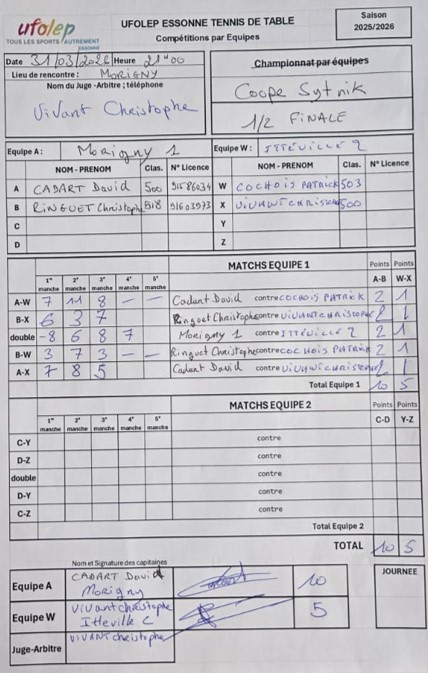 ufolep
TOUS LES SPORTS AUTREMENT
ESSONNE
UFOLEP ESSONNE TENNIS DE TABLE
Compétitions par Equipes
Saison
2025/2026
Date 31/03/2026 Heure 21H00
Lieu de rencontre : MORIGNY
Nom du Juge -Arbitre ; téléphone
ViVANT Christophe
Championnat par équipes
Coupe Sytnik
1/2 FINALE
Equipe A : Morigny 1
Equipe W : ITTEVILLE 2
NOM - PRENOM Clas. N° Licence
NOM - PRENOM Clas. N° Licence
A CADART David 500
W COCHOIS PATRICK 503
B RINGUET Christophe 818 91603973
X 500
C Y
D Z
MATCHS EQUIPE 1 Points Points
1° manche 2° manche 3° manche 4° manche 5° manche A-B W-X
A-W 7 11 8 – – Cadart David contre COCHOIS PATRICK 2 1
B-X 6 3 7 Ringuet Christophe contre ViVANT CHRISTOPHE 2 1
double -8 6 8 7 Morigny 1 contre ITTEVILLE 2 2 1
B-W 3 7 3 – – Ringuet Christophe contre COCHOIS PATRICK 2 1
A-X 7 8 5 Cadart David contre 2 1
Total Equipe 1 10 5
MATCHS EQUIPE 2 Points Points
1° manche 2° manche 3° manche 4° manche 5° manche C-D Y-Z
C-Y contre
D-Z contre
double contre
D-Y contre
C-Z contre
Total Equipe 2
TOTAL 10 5
Nom et Signature des capitaines
JOURNEE
Equipe A CADART David
Morigny 10
Equipe W ViVANT christophe
Itteville 5
Juge-Arbitre ViVANT christophe